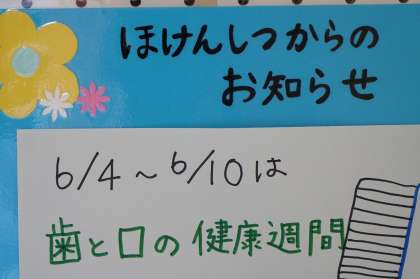 ほけんしつからの
お知らせ
6/4～6/10は
歯と口の健康週間